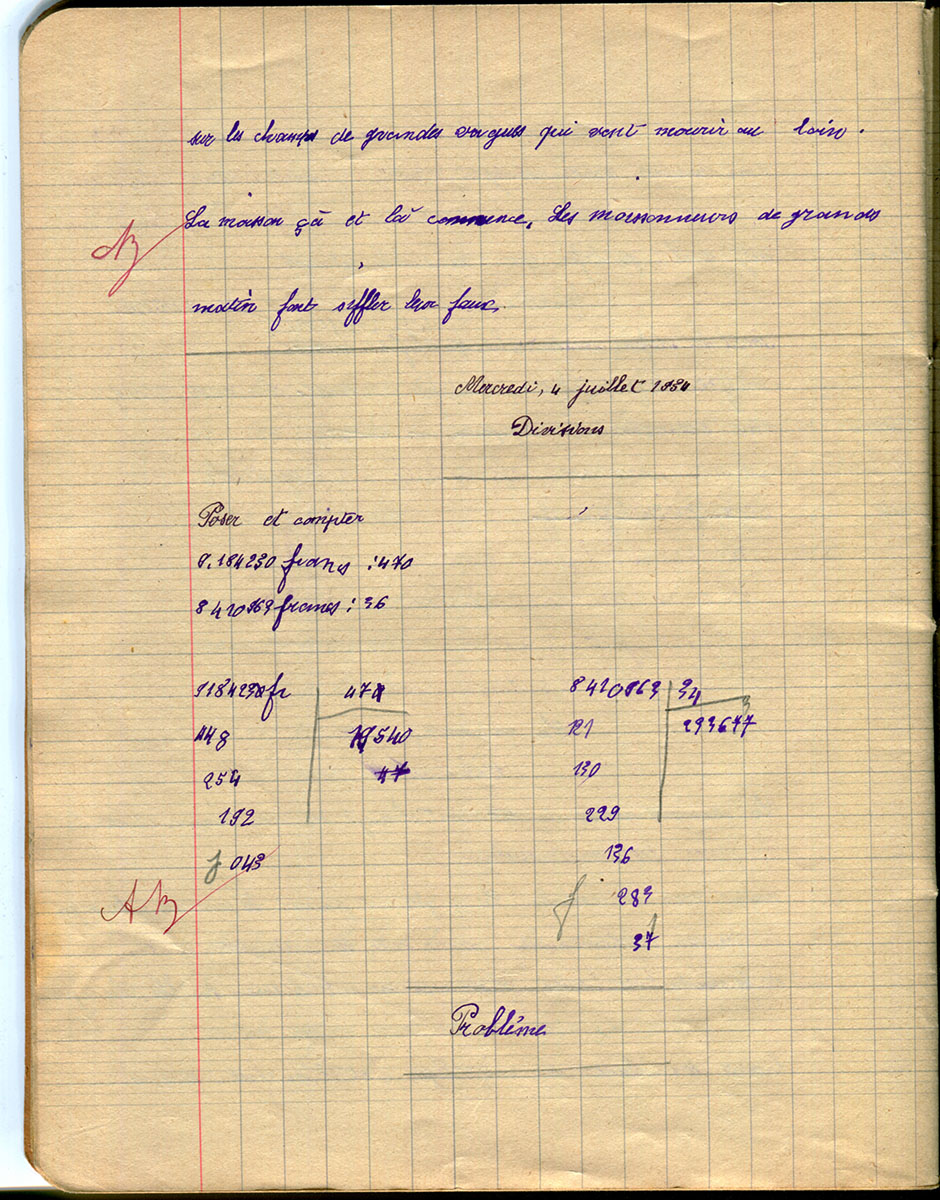 sur les champs de grandes vagues qui vont mourir au loin.
La moisson çà et là commence, Les moissonneurs de grands
matin font siffler leur faux.
Mercredi, 4 juillet 1934
Divisions
Poser et compter
9.184230 francs : 470
8410963 francs : 36
9184230 fr 470
8410963 34
448 19540
121 293647
254 47
130
192
229
043
136
283
37
AB
Problème